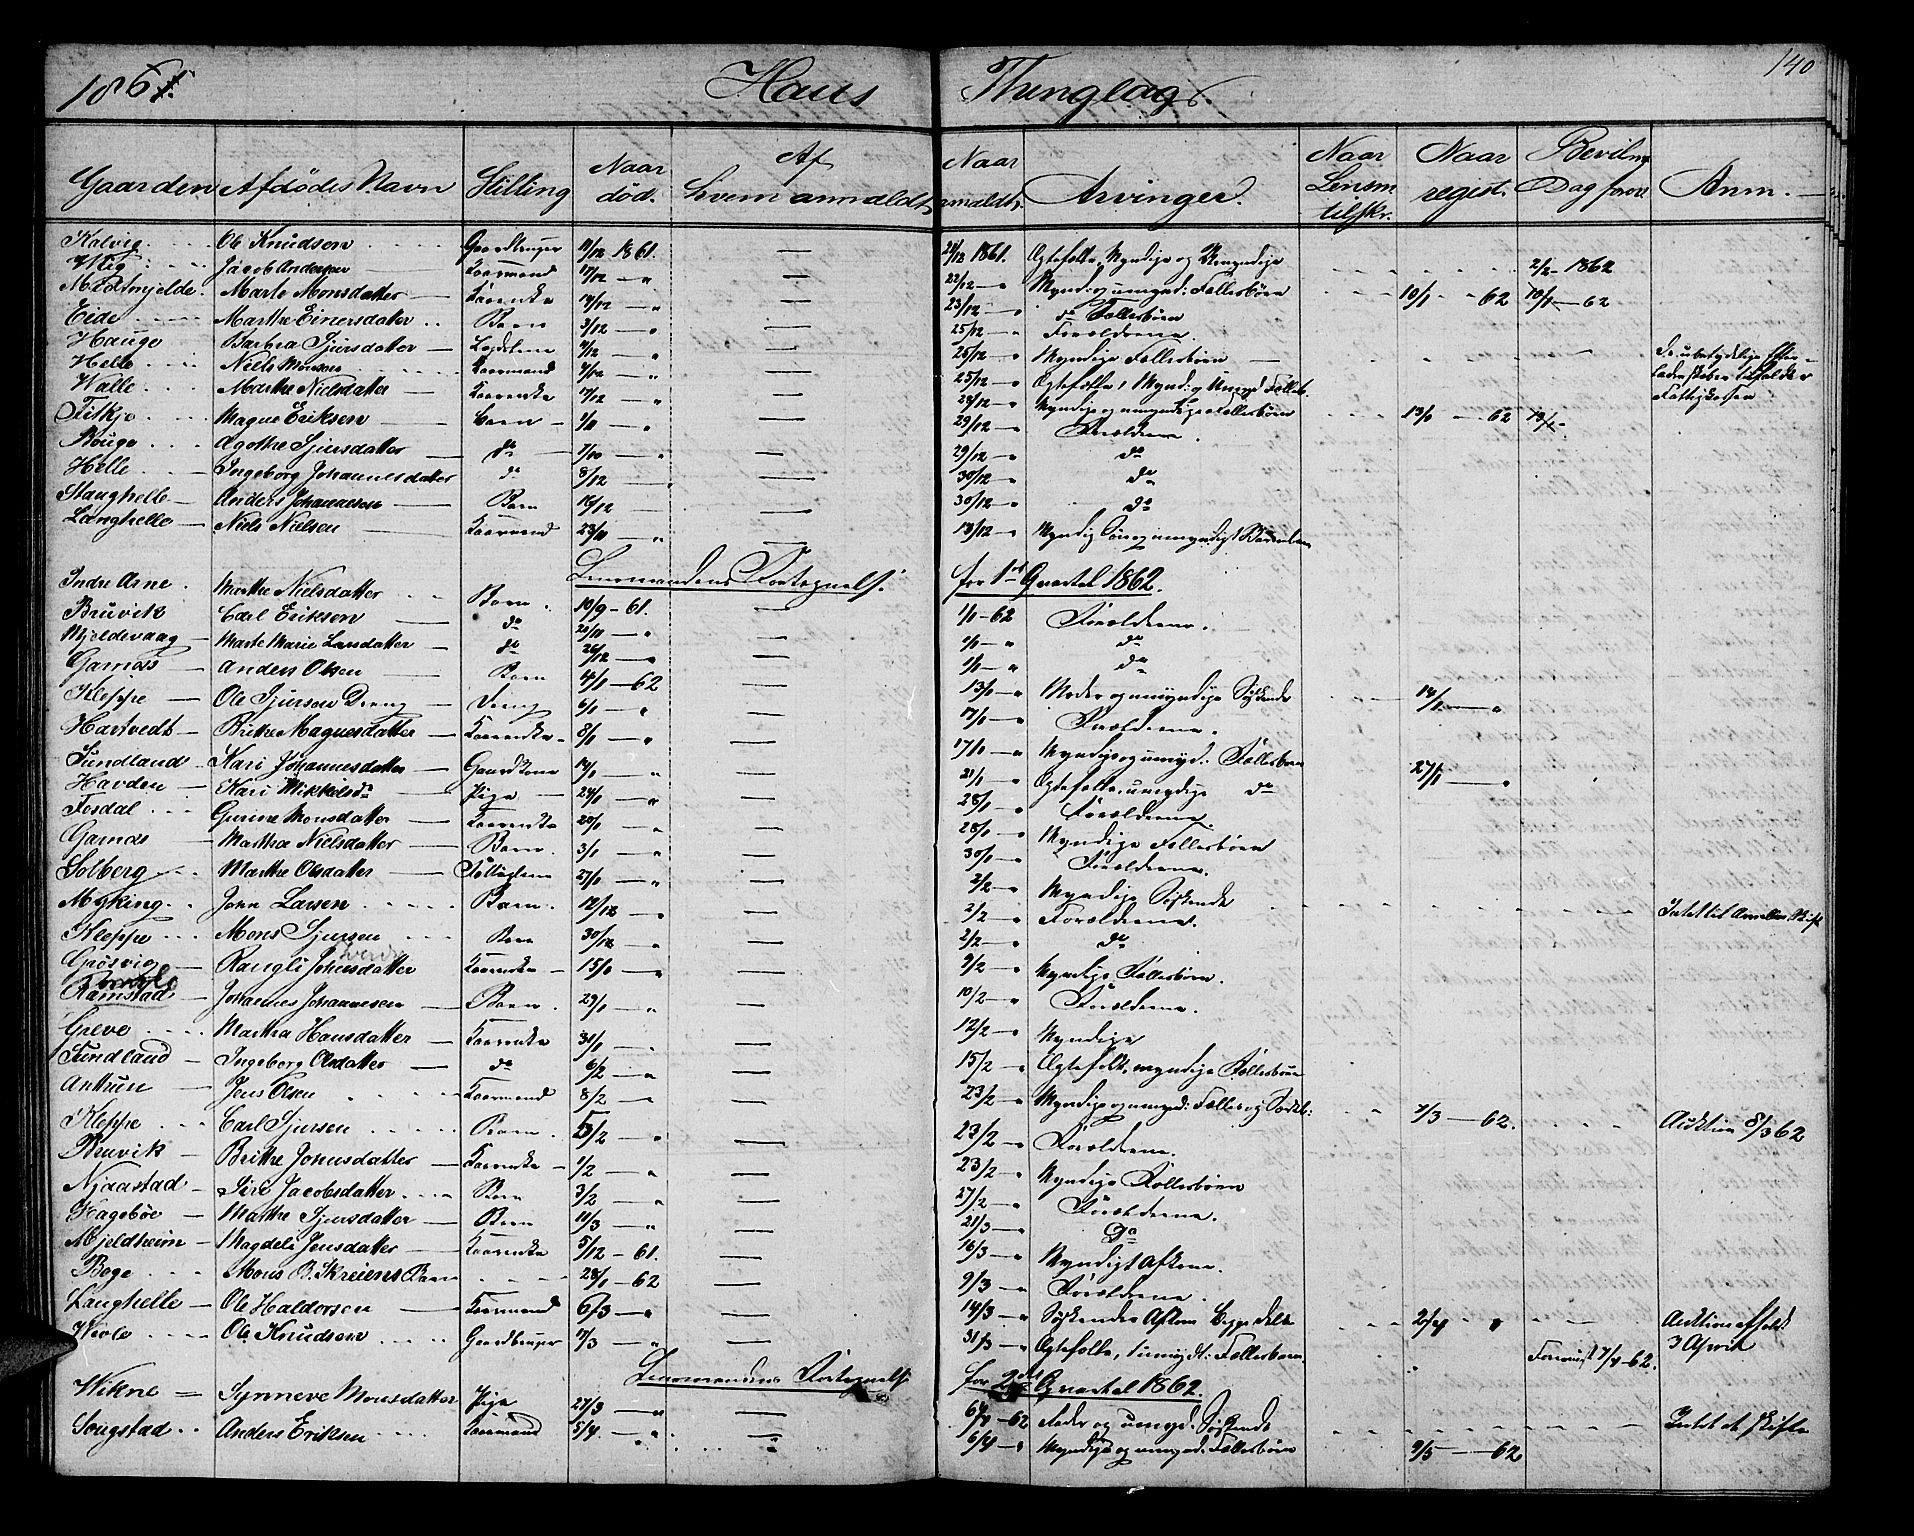 1861. Haus Thinglag. 140
Gaarden Afdødes Navn Stilling Naar død. Af hvem anmeldt Naar anmeldt. Arvinger. Naar Lensm tilskr. Naar regist. Bevilng Dag forev. Anm.
Kalvig Ole Knudsen Gaardbruger 11/12 1861. — 21/12 1861. Ægtefælle, Myndige og Umyndige 2/2 - 1862
Wiig Jacob Andersen Kaarmand 17/12 — " — 22/12 — " Mynd: og umynd: Fællesbörn
Midtmjelde Marte Monsdatter Kaarenke 14/12 — " — 23/12 — " do Fællesbörn 10/1 - 62 10/1 — 62
Eide Marthe Einersdatter Barn 3/12 — " — 25/12 — " Forældrene.
Hauge Barbra Sjursdatter 4/12 — " — 25/12 — " Myndige Fællesbörn
Helle Niels Monsen Kaarmand 7/12 — " — 25/12 — " Ægtefælle, Mynd: og Umynd Fællesb.
Walle Marthe Nielsdatter Kaarenke 17/12 — " — 28/12 — " Myndige og umyndige Fællesbörn 13/1 — 62 13/1 -
Fitkje Magne Eriksen Barn — 29/12 — " Forældrene.
Bouge Agothe Sjursdatter do 7/10 — " — 29/12 — " do
Helle Ingeborg Johannesdatter do 8/12 — " — 30/12 — " do
Stanghelle Anders Johannesen Barn 16/12 — — 30/12 — " do
Langhelle Niels Nielsen Kaarmand 23/11 — " — 18/12 — "
Lensmandens Fortegnelse for 1st Qvartal 1862.
Indre Arne Marthe Nielsdatter Barn 10/9 - 61. — 1/1 - 62 Forældrene.
Bruvik Carl Eriksen do 20/11 — " — 1/1 — " do
Mjeldevaag Marte Marie Larsdatter do 26/12 — " — 1/1 — " do
Gamos Anders Olsen Barn 4/1 — 62 — 13/1 — " Moder og umyndige Söskende 14/1 — "
Kleppe Ole Sjursen Dreng Dreng 6/1 — " — 17/1 — " Forældrene.
Hartvedt Brithe Magnesdatter Kaarenke 8/1 — " — 17/1 — " Myndige og umynd: Fællesbörn
Sundland Kari Johannesdatter Gaardkone 14/1 — " — 21/1 — " Ægtefælle, umyndige do 27/1 — "
Havden Kari Mikkelsdr Pige 24/1 — " — 28/1 — " Forældrene.
Fosdal Gurine Monsdatter Kaarenke 20/1 — " — 28/1 — " Myndige Fællesbörn
Gamos Martha Nielsdatter Barn 3/1 — " — 30/1 — " Forældrene.
Solberg Marthe Olsdatter 27/1 — " — 2/2 — " Myndige Söskende Intet til
Myking John Larsen Barn. 12/12 — " — 2/2 — " Forældrene.
Kleppe Mons Sjursen Barn 30/12 — " — 2/2 — " do
Grösvig Rangli Johnsdatter Kaarenke 15/1 — " — 9/2 — " Myndige Fællesbörn.
Ramstad Johannes Johannesen Barn 29/1 — " — 10/2 — " Forældrene.
Greve Martha Hansdatter Kaarenke 31/1 — " — 12/2 — " Myndige
Sundland Ingeborg Olsdatter do 6/2 — " — 15/2 — " Ægtefolk, myndige Fællesbörn
Antun Jens Olsen Kaarmand 8/2 — " — 23/2 — " Myndige og umynd: Fælles og Særk: 7/3 — 62. Auktion 8/3 62
Kleppe Carl Sjursen Barn 5/2 — " — 23/2 — " Forældrene.
Bruvik Brithe Johnsdatter Kaarenke 1/2 — " — 23/2 — " Myndige Fællesbörn
Njaastad Siri Jacobsdatter Barn 3/2 — " — 27/2 — " Forældrene.
Hageböe Marthe Sjursdatter Barn 11/3 — " — 21/3 — " Do
Mjeldheim Magdeli Jensdatter Kaarenke 5/12 - 61. — 16/3 — " Myndigt Afkom.
Boge Mons B. Skreiens Barn 28/1 - 62 — 9/3 — " Forældrene.
Langhelle Ole Haldorsen Kaarmand 6/3 — " — 14/3 — " Söskendes Afkom 2/4 " Auktion afholdt 3 April
Weole Ole Knudsen Gaardbruger 17/3 — " — 31/3 — " Ægtefælle, umynd: Fællesbörn. Foreviist 7/4 - 62.
Lensmandens Fortegnelse for 2det Qvartal 1862.
Wikne Synneve Monsdatter Pige 27/3 — " — 6/4 - 62 Fader og umynd. Söskende Intet at skifte
Songstad Anders Eriksen Kaarmand 5/4 — " — 6/4 — " Myndige og umynd: Fællesbörn 9/5 — 62